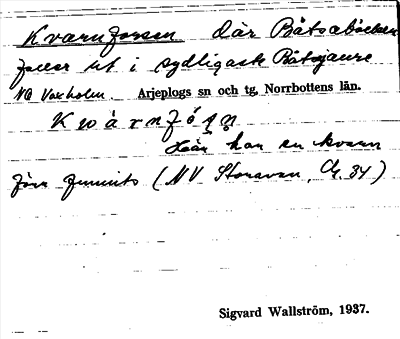 Kvarnforsen där Båtsabäcken
faller ut i sydligaste Båtsjaure
NO Vaxholm. Arjeplogs sn och tg, Norrbottens län.
K w à r n f ó ṣ ṇ
Här har en kvarn
förr funnits (NV Storavan, 34)
Sigvard Wallström, 1937.